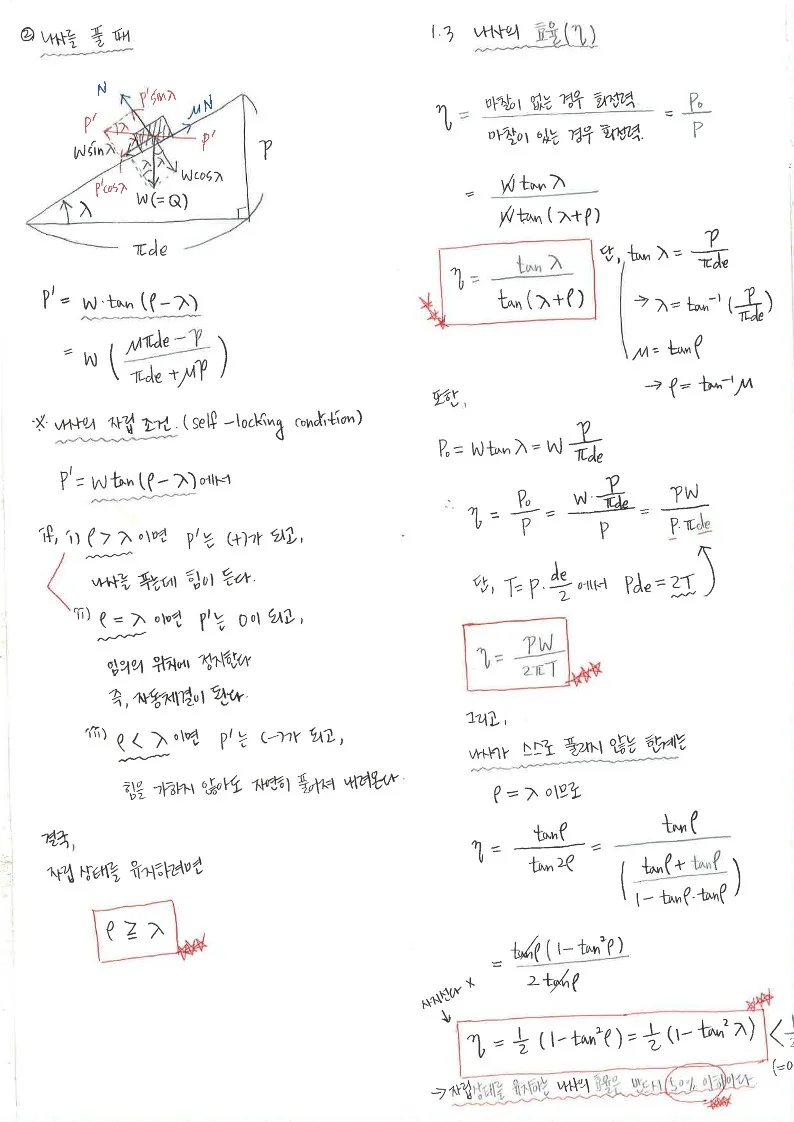 ② 나사를 풀 때
N
P'sinλ
μN
P'
λ
P'
Wsinλ
P'cosλ
λ
λ
Wcosλ
W(=Q)
λ
p
πde
P' = W·tan(ρ-λ)
= W ( μπde - p / πde + μp )
※ 나사의 자립 조건. (self-locking condition)
P' = Wtan(ρ-λ)에서
if, i) ρ > λ 이면 P'는 (+)가 되고,
나사를 푸는데 힘이 든다.
ii) ρ = λ 이면 P'는 0이 되고,
임의의 위치에 정지한다
즉, 자동체결이 된다.
iii) ρ < λ 이면 P'는 (-)가 되고,
힘을 가하지 않아도 자연히 풀어져 내려온다.
결국,
자립 상태를 유지하려면
ρ ≧ λ
1.3 나사의 효율(η)
η = 마찰이 없는 경우 회전력 / 마찰이 있는 경우 회전력. = P₀ / P
= W tan λ / W tan (λ+ρ)
η = tan λ / tan(λ+ρ)
단, tan λ = p / πde
→ λ = tan⁻¹ ( p / πde )
μ = tanρ
→ ρ = tan⁻¹ μ
또한,
P₀ = W tan λ = W p / πde
∴ η = P₀ / P = W · p / πde / P = pW / P·πde
단, T = P · de / 2 에서 Pde = 2T
η = pW / 2πT
그리고,
나사가 스스로 풀리지 않는 한계는
ρ = λ 이므로
η = tanρ / tan2ρ = tanρ / ( tanρ + tanρ / 1 - tanρ·tanρ )
= tanρ (1 - tan²ρ) / 2 tanρ
η = ½ (1 - tan²ρ) = ½ (1 - tan²λ) < ½
→ 자립상태를 유지하는 나사의 효율은 반드시 50% 이하이다.